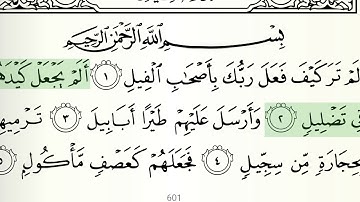 بِسْمِ اللَّهِ الرَّحْمَٰنِ الرَّحِيمِ
لَمْ تَرَ كَيْفَ فَعَلَ رَبُّكَ بِأَصْحَٰبِ ٱلْفِيلِ ١ أَلَمْ يَجْعَلْ كَيْدَهُ
فِى تَضْلِيلٍ ٢ وَأَرْسَلَ عَلَيْهِمْ طَيْرًا أَبَابِيلَ ٣ تَرْمِيهِ
بِحِجَارَةٍ مِّن سِجِّيلٍ ٤ فَجَعَلَهُمْ كَعَصْفٍ مَّأْكُولٍ ٥
601